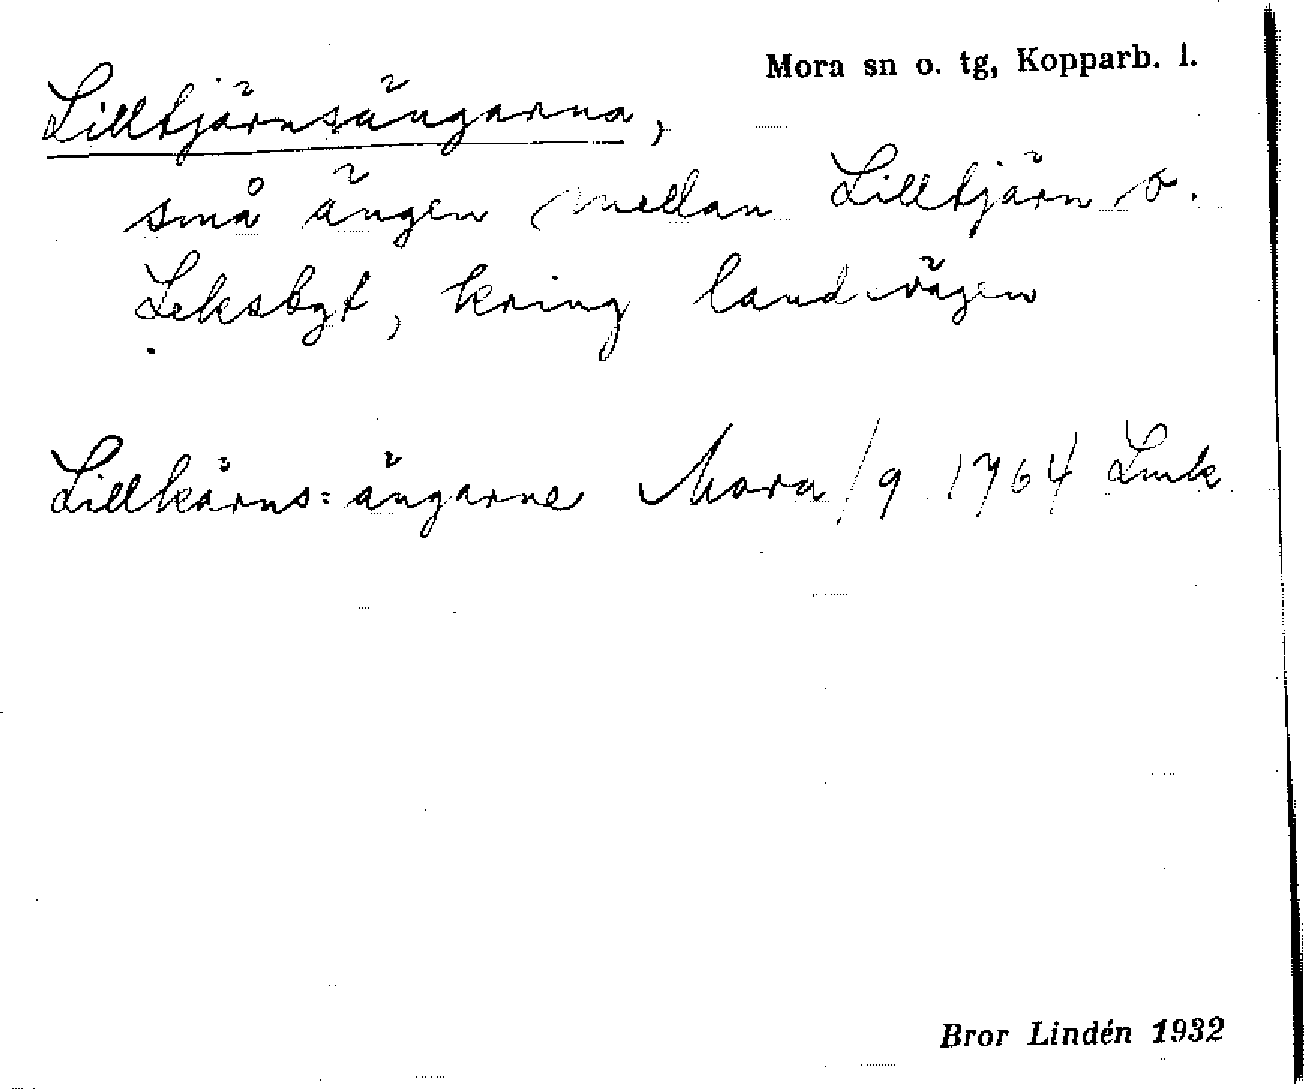 Mora sn o. tg, Kopparb. l.
Lilltjärnsängarna,
små ängen mellan Lilltjärn o.
Leksbgt, kring landsvägen
Lillkärns=ängarne Mora/9 1764 Lmk
Bror Lindén 1932